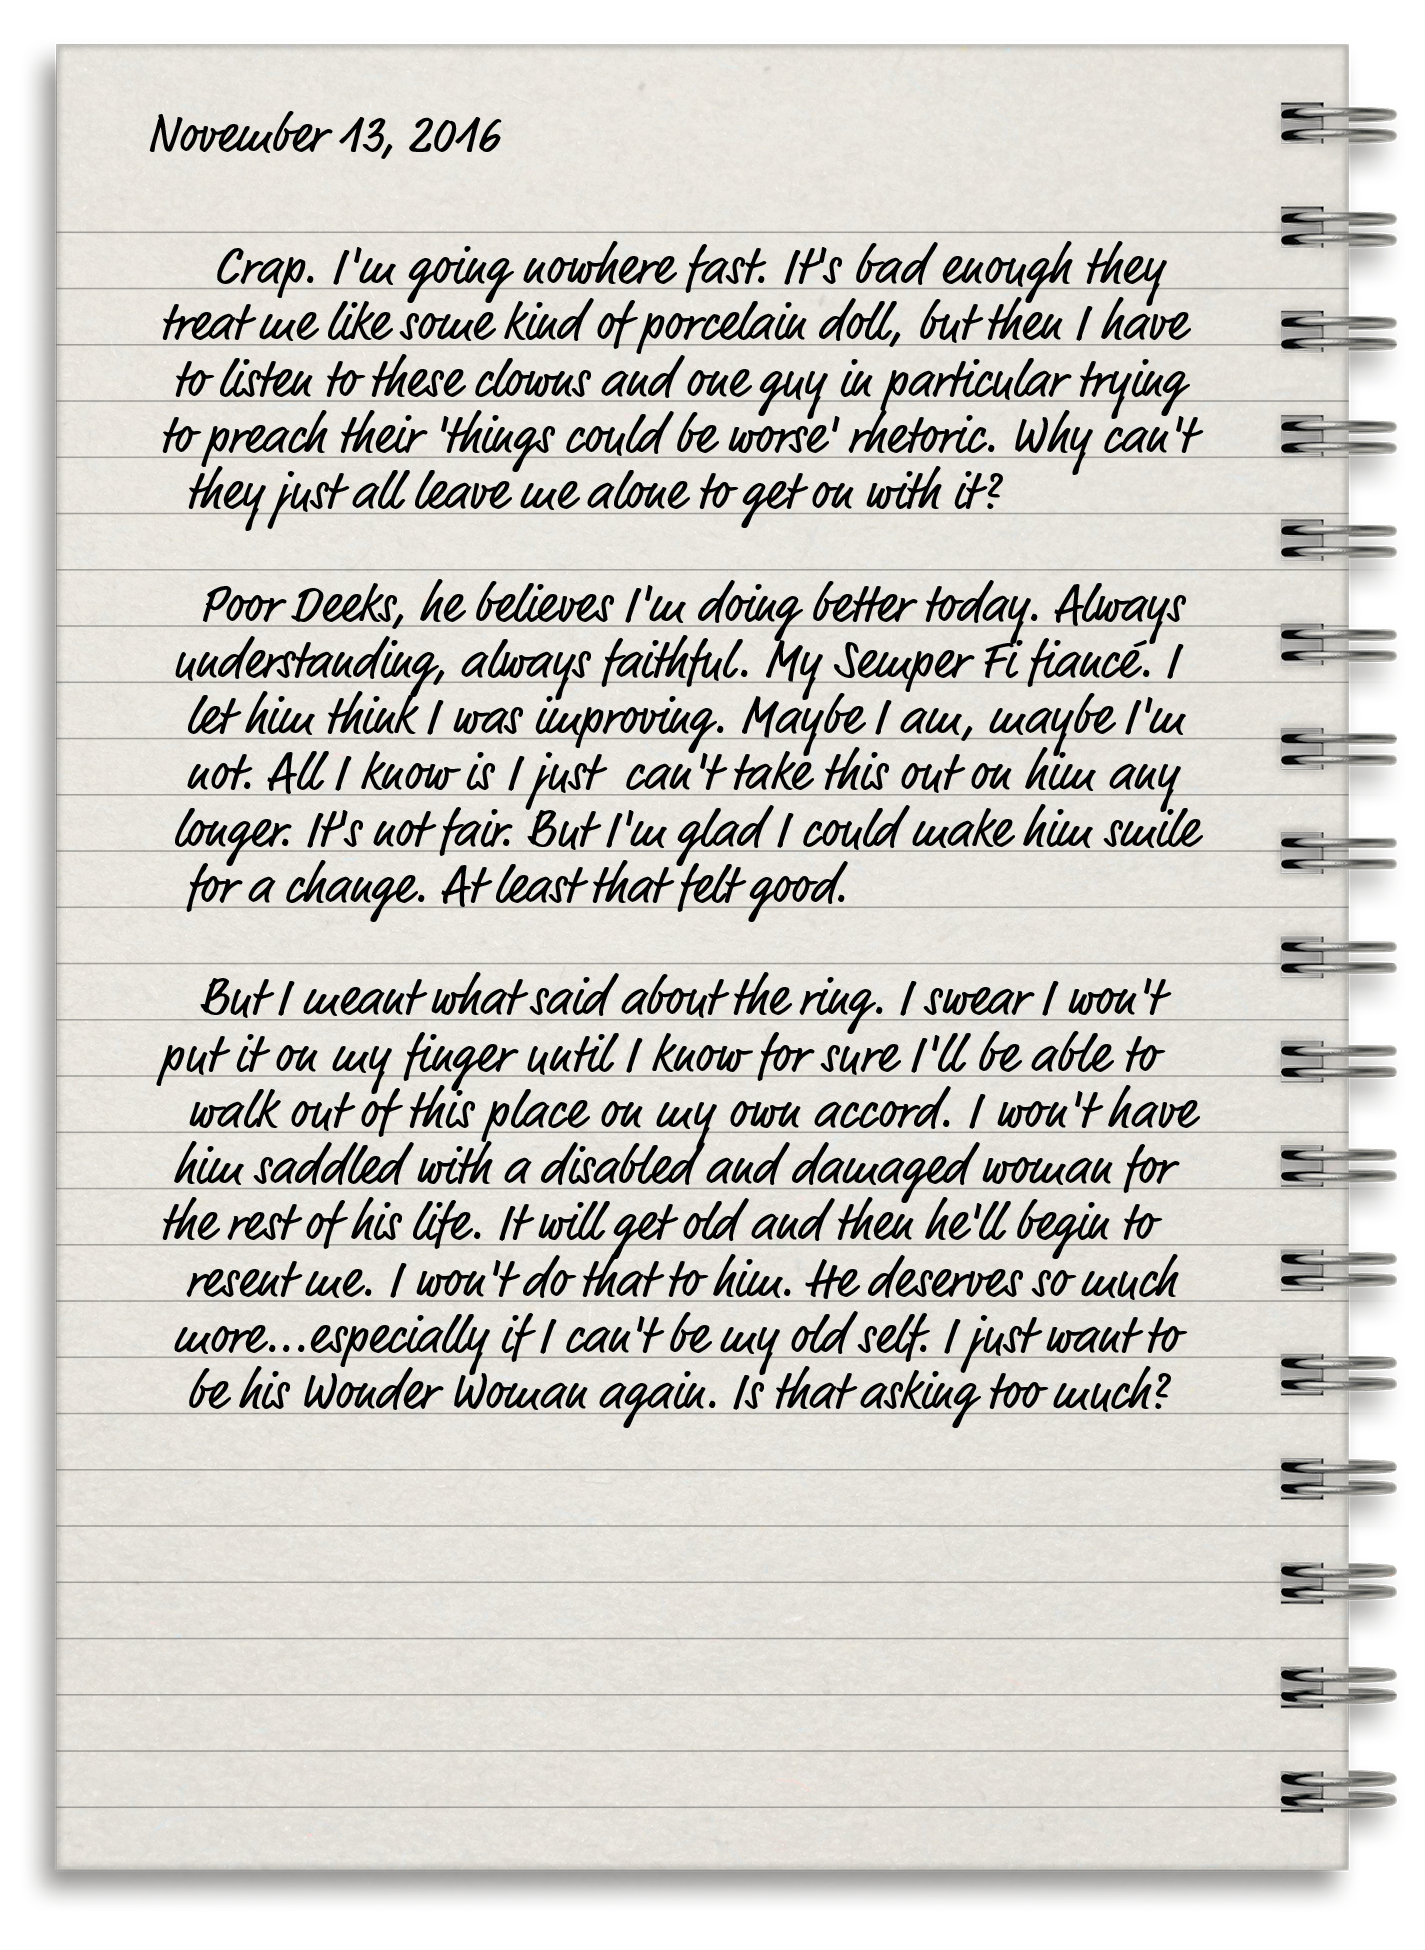 November 13, 2016
Crap. I'm going nowhere fast. It's bad enough they
treat me like some kind of porcelain doll, but then I have
to listen to these clowns and one guy in particular trying
to preach their 'things could be worse' rhetoric. Why can't
they just all leave me alone to get on with it?
Poor Deeks, he believes I'm doing better today. Always
understanding, always faithful. My Semper Fi fiancé. I
let him think I was improving. Maybe I am, maybe I'm
not. All I know is I just can't take this out on him any
longer. It's not fair. But I'm glad I could make him smile
for a change. At least that felt good.
But I meant what said about the ring. I swear I won't
put it on my finger until I know for sure I'll be able to
walk out of this place on my own accord. I won't have
him saddled with a disabled and damaged woman for
the rest of his life. It will get old and then he'll begin to
resent me. I won't do that to him. He deserves so much
more...especially if I can't be my old self. I just want to
be his Wonder Woman again. Is that asking too much?